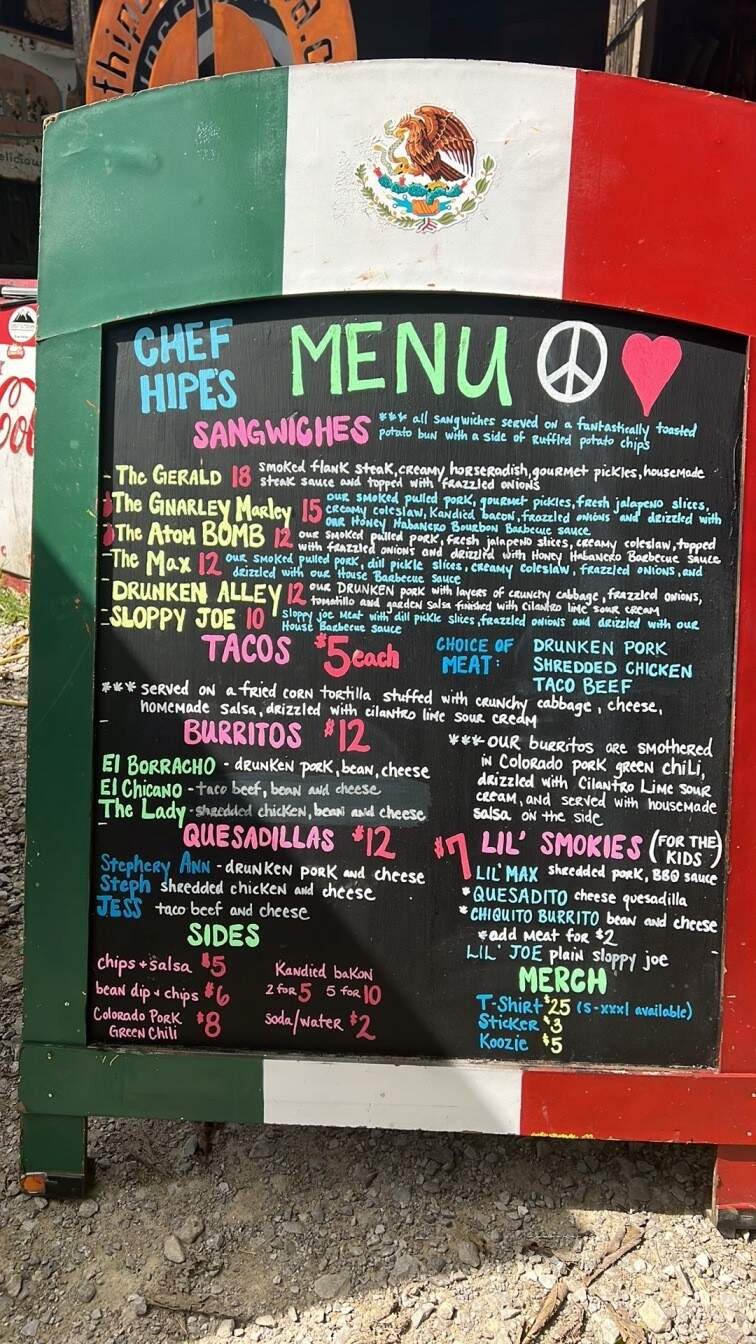 elicious
Col
CHEF
HIPE'S
MENU
SANGWICHES
*** all sangwiches served on a fantastically toasted
potato bun with a side of Ruffled potato chips
- The GERALD 18 smoked flank steak, creamy horseradish, gourmet pickles, housemade
steak sauce and topped with frazzled onions
The GNARLEY Marley 15 our smoked pulled pork, gourmet pickles, fresh jalapeno slices,
creamy coleslaw, Kandied bacon, frazzled onions and drizzled with
our Honey Habanero Bourbon Barbecue sauce
The Atom BOMB 12 our smoked pulled pork, fresh jalapeno slices, creamy coleslaw, topped
with frazzled onions and drizzled with Honey Habanero Barbecue Sauce
- The Max 12 our smoked pulled pork, dill pickle slices, creamy coleslaw, frazzled onions, and
drizzled with our House Barbecue Sauce
DRUNKEN ALLEY 12 our DRUNKEN pork with layers of crunchy cabbage, frazzled onions,
tomatillo and garden salsa finished with cilantro lime sour cream
- SLOPPY JOE 10 Sloppy joe meat with dill pickle slices, frazzled onions and drizzled with our
House Barbecue Sauce
TACOS $5 each
CHOICE OF
MEAT:
DRUNKEN PORK
SHREDDED CHICKEN
TACO BEEF
*** served on a fried corn tortilla stuffed with crunchy cabbage, cheese,
homemade salsa, drizzled with cilantro lime sour cream
BURRITOS $12
El BORRACHO - drunken pork, bean, cheese
El Chicano - taco beef, bean and cheese
The Lady - shredded chicken, bean and cheese
*** OUR burritos are smothered
in Colorado pork green chili,
drizzled with Cilantro Lime sour
cream, and served with housemade
salsa on the side
QUESADILLAS $12
Stephery Ann - drunken pork and cheese
Steph shredded chicken and cheese
JESS taco beef and cheese
$7 LIL' SMOKIES (FOR THE
KIDS)
LIL' MAX shredded pork, BBQ sauce
* QUESADITO cheese quesadilla
* CHIQUITO BURRITO bean and cheese
* add meat for $2
LIL' JOE plain sloppy joe
SIDES
chips + salsa $5
bean dip + chips $6
Colorado Pork
Green Chili $8
Kandied baKon
2 for 5 5 for 10
soda/water $2
MERCH
T-Shirt $25 (S-xxxl available)
Sticker $3
Koozie $5